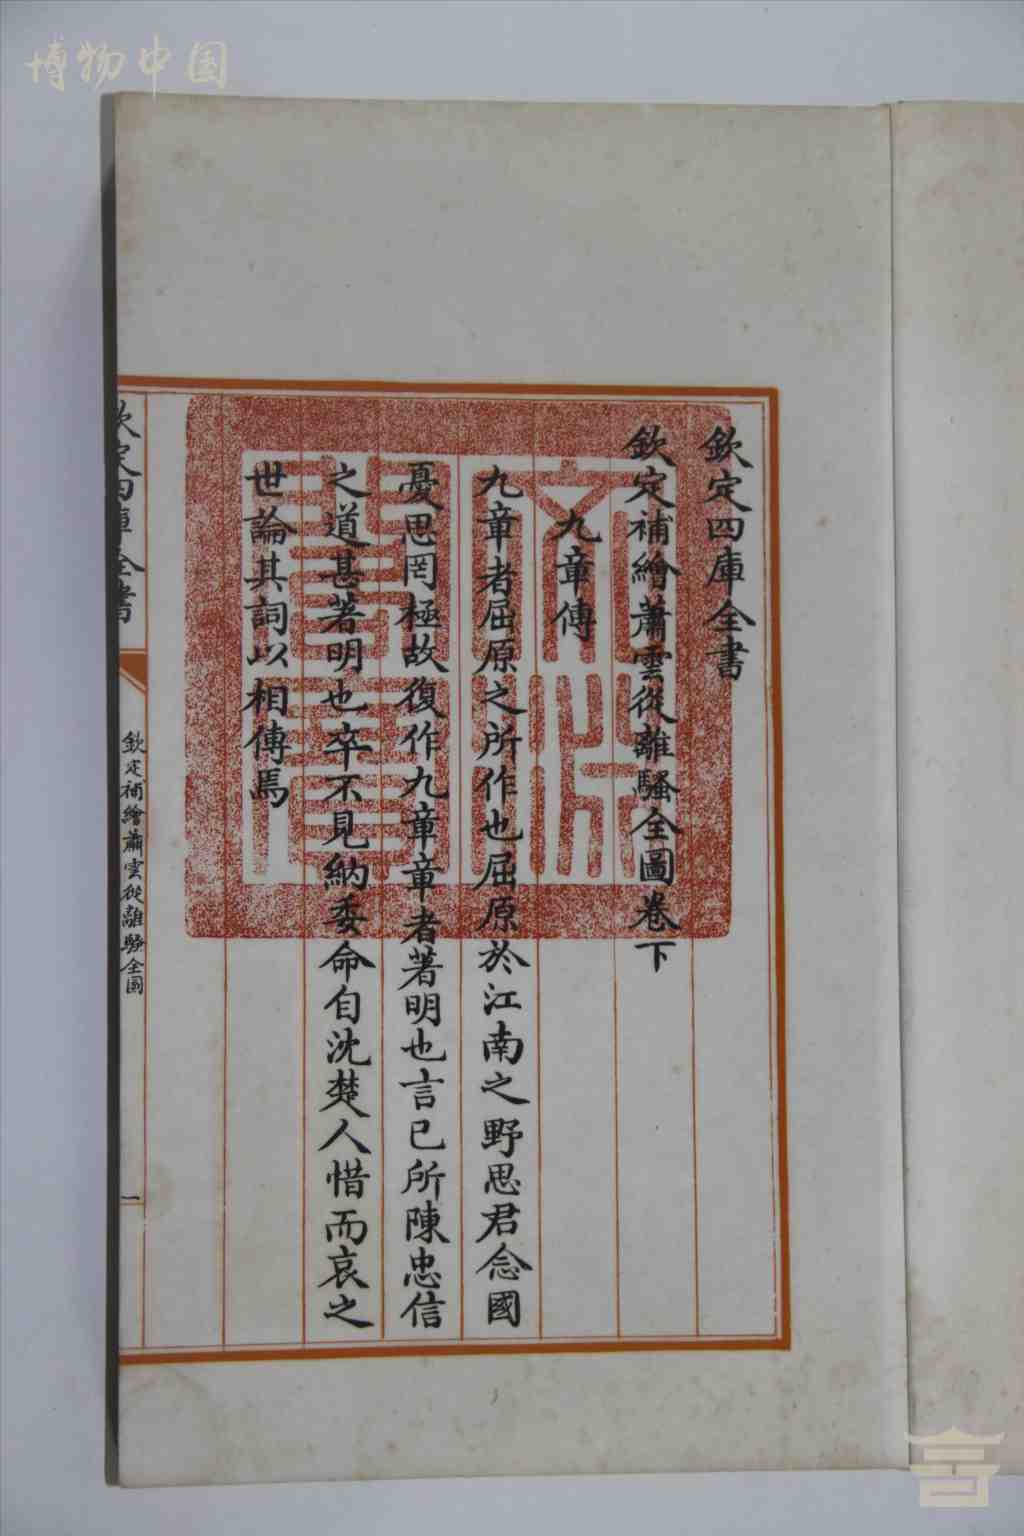 博物中国
欽定四庫全書
欽定補繪蕭雲從離騷全圖卷下
九章傳
九章者屈原之所作也屈原於江南之野思君念國
憂思罔極故復作九章章者著明也言已所陳忠信
之道甚著明也卒不見納委命自沈楚人惜而哀之
世論其詞以相傳焉
欽定四庫全書
欽定補繪蕭雲從離騷全圖
一
文淵閣寶